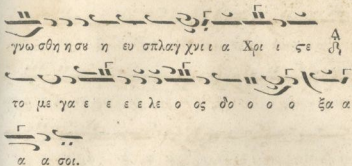 γνω σθη η σου η ευ σπλαγ χνι ι α Χρι ι ϛε
το με γα ε ε ε ε λε ο ος δο ο ο ο ξα α
α α σοι.